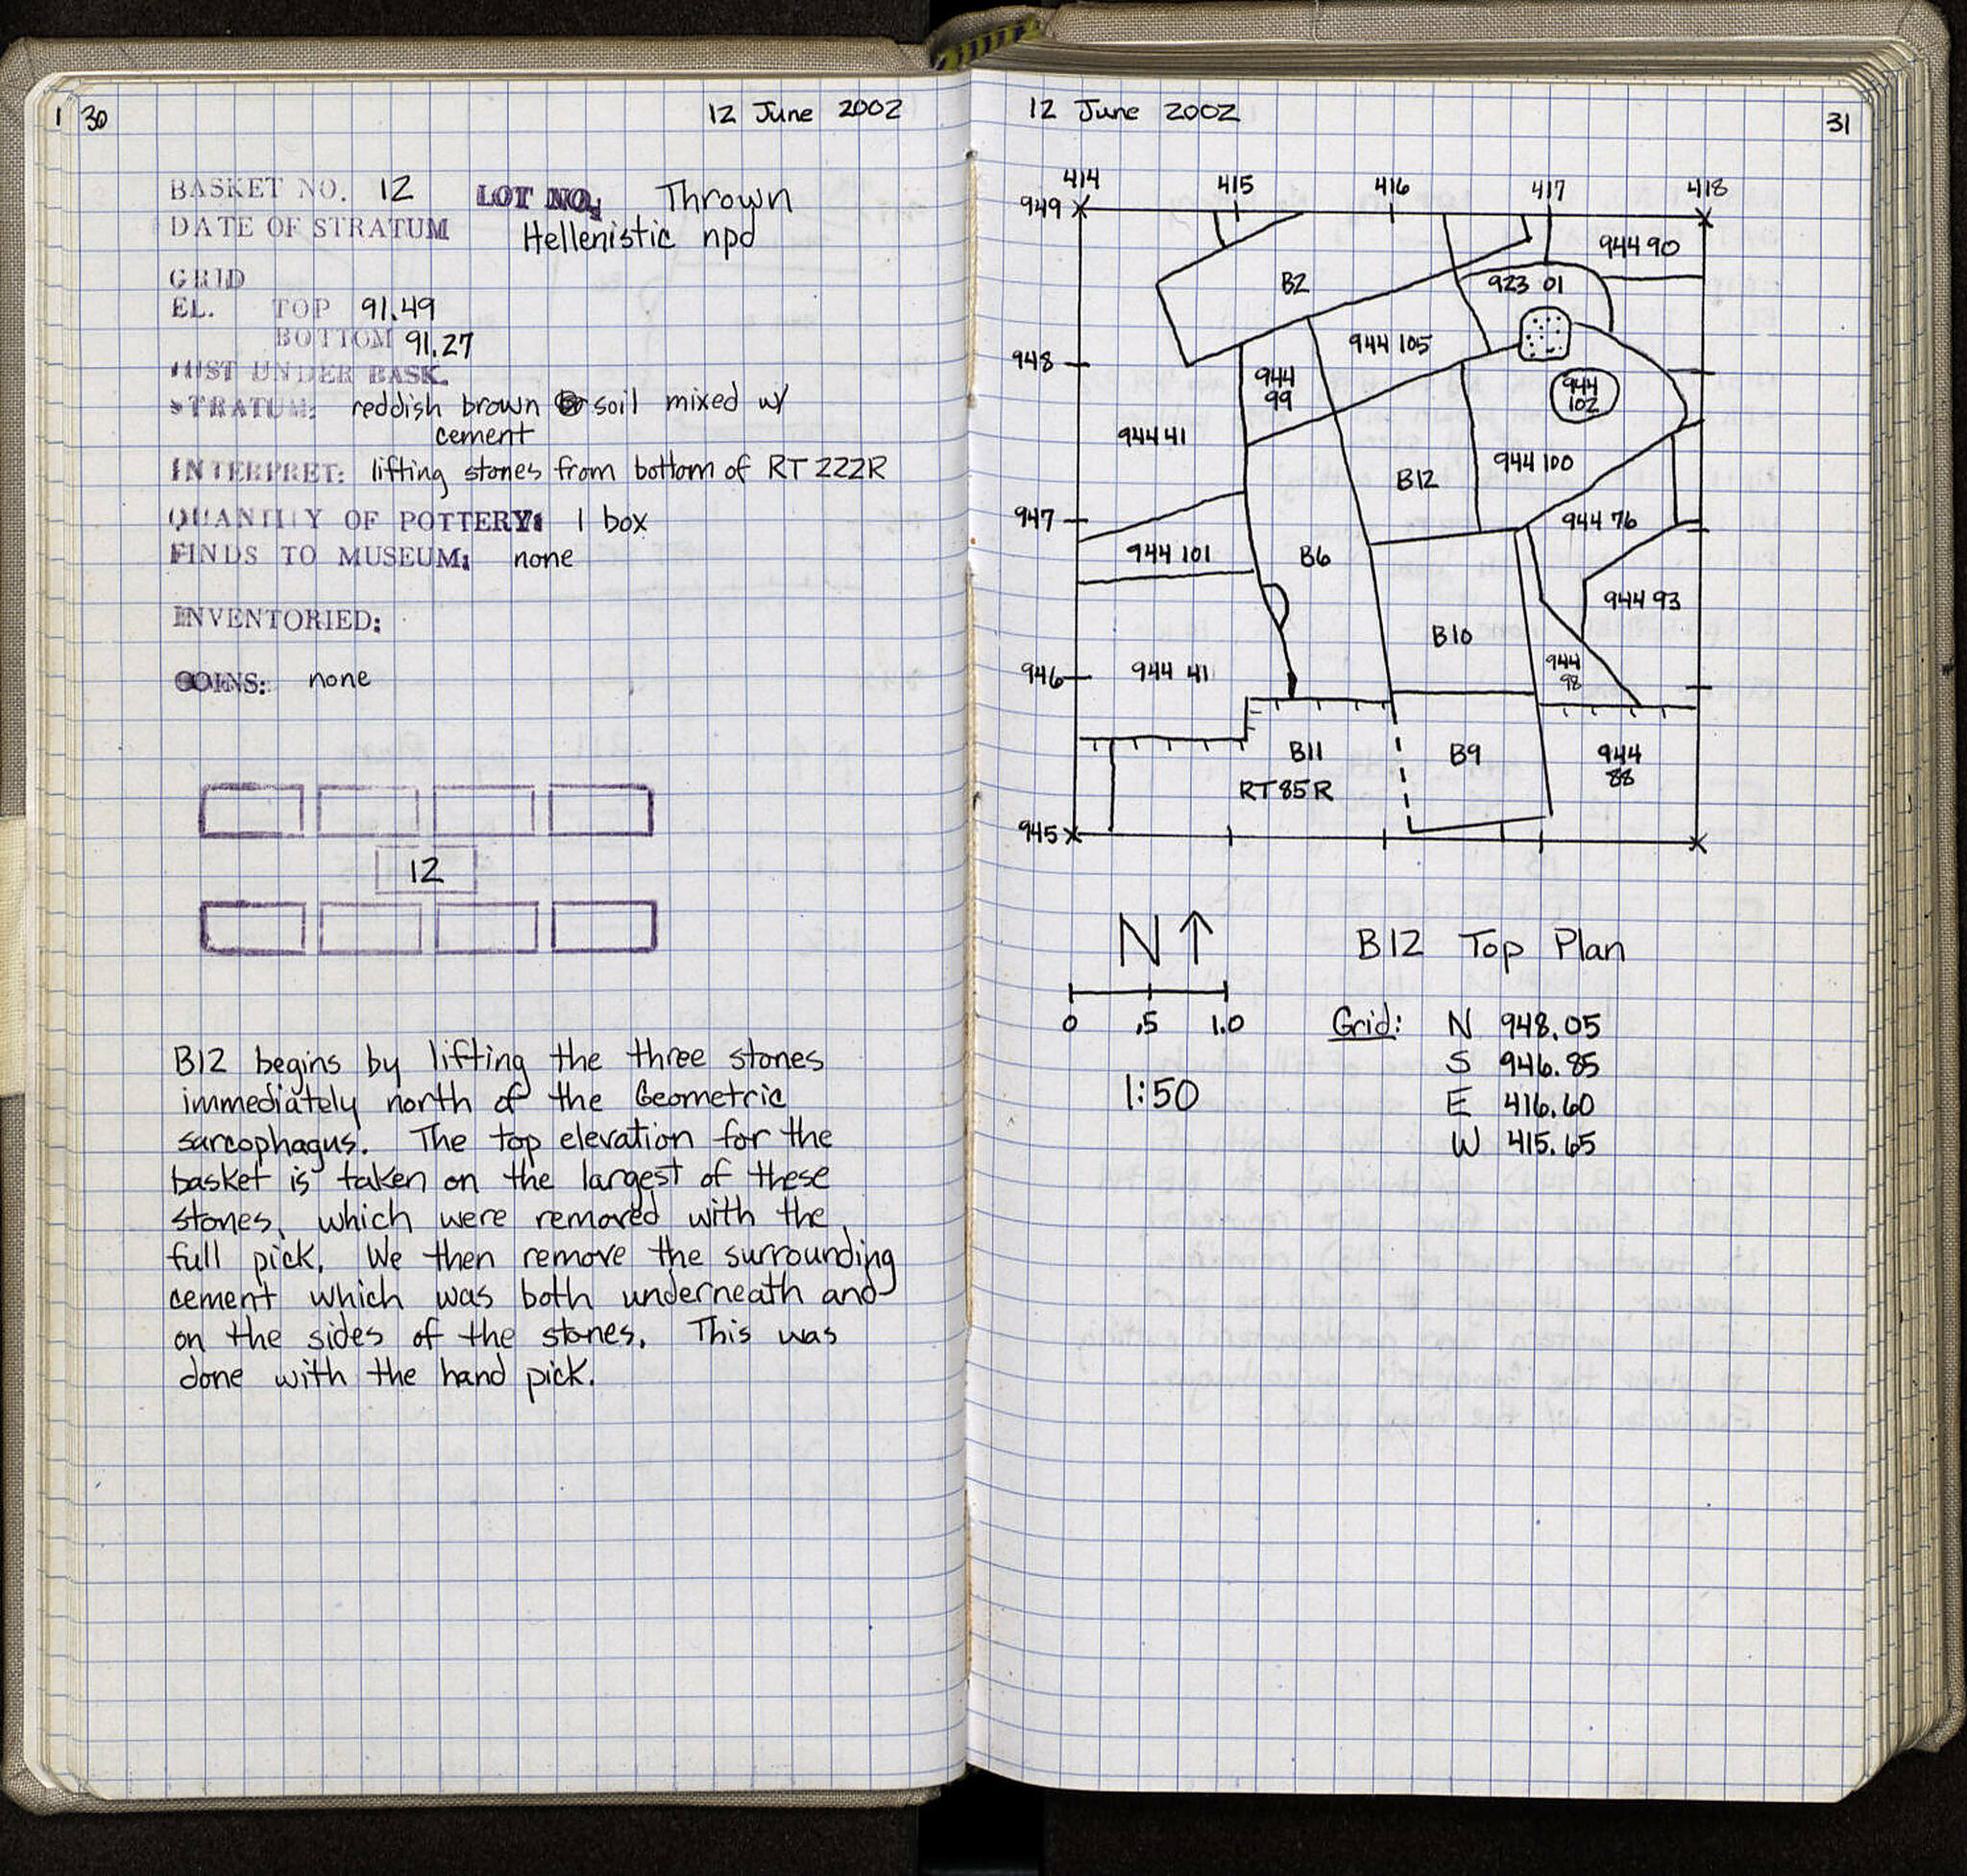 30
12 June 2002
BASKET NO. 12 LOT NO. Thrown
DATE OF STRATUM Hellenistic npd
GRID
EL. TOP 91.49
BOTTOM 91.27
JUST UNDER BASK.
STRATUM: reddish brown soil mixed w/
cement
INTERPRET: lifting stones from bottom of RT 222R
QUANTITY OF POTTERY: 1 box
FINDS TO MUSEUM: none
INVENTORIED:
COINS: none
12
B12 begins by lifting the three stones
immediately north of the Geometric
sarcophagus. The top elevation for the
basket is taken on the largest of these
stones, which were removed with the
full pick. We then remove the surrounding
cement which was both underneath and
on the sides of the stones. This was
done with the hand pick.
12 June 2002
31
414 415 416 417 418
949
944 90
B2
923 01
948
944 105
944
99
944
102
944 41
944 100
B12
947
944 76
944 101
B6
944 93
B10
946
944 41
944
98
B11
B9
944
88
RT 85 R
945
N
B12 Top Plan
0 .5 1.0
Grid: N 948.05
S 946.85
1:50
E 416.60
W 415.65